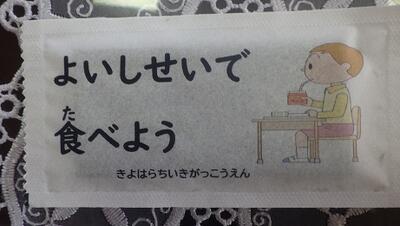 よいしせいで
食べよう
きよはらちいきがっこうえん